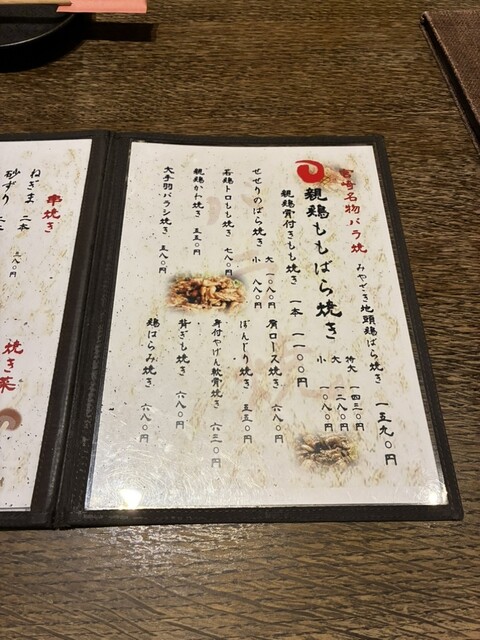 宮崎名物バラ焼
みやざき地頭鶏ばら焼き 一五九〇円
親鶏ももばら焼き
特大 一四三〇円
大 一二八〇円
小 一〇八〇円
親鶏骨付きもも焼き 一本 一一〇〇円
せせりのばら焼き
大 一〇八〇円
小 八八〇円
肩ロース焼き 六八〇円
若鶏トロもも焼き 七八〇円
ぼんじり焼き 五五〇円
親鶏かわ焼き 五五〇円
身付やげん軟骨焼き 六三〇円
大手羽バラシ焼き 五八〇円
背ぎも焼き 六八〇円
鶏はらみ焼き 六八〇円
串焼き
ねぎま 二本 三八〇円
砂ずり 二本
焼き菜